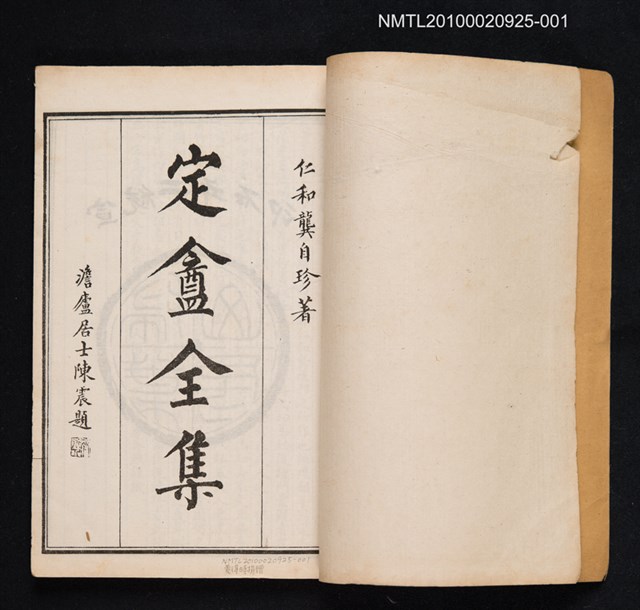 NMTL20100020925-001
仁和龔自珍著
定盦全集
澹廬居士陳震題
NMTL20100020925-001